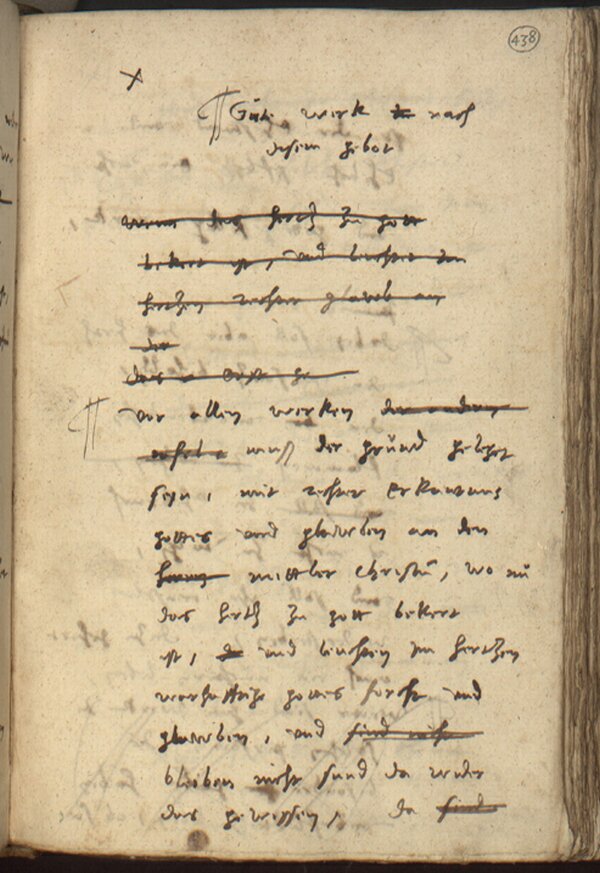 438
Gute werk nach
disem gebot
wenn das hertz zu gott
bekert ist, und leuchtet im
hertzen rechter glaub an
der
das erst ge
vor allen werken der andern
muss der grund gelegt
seyn, mit rechter erkantnus
gottes und glawben an den
herrn mittler Christum, wo nu
das hertz zu gott bekert
ist, und leuchten im hertzen
warhafftige gottes forcht und
glawben, und sind nicht
bleiben nicht sund da wider
das gewissen, da sind